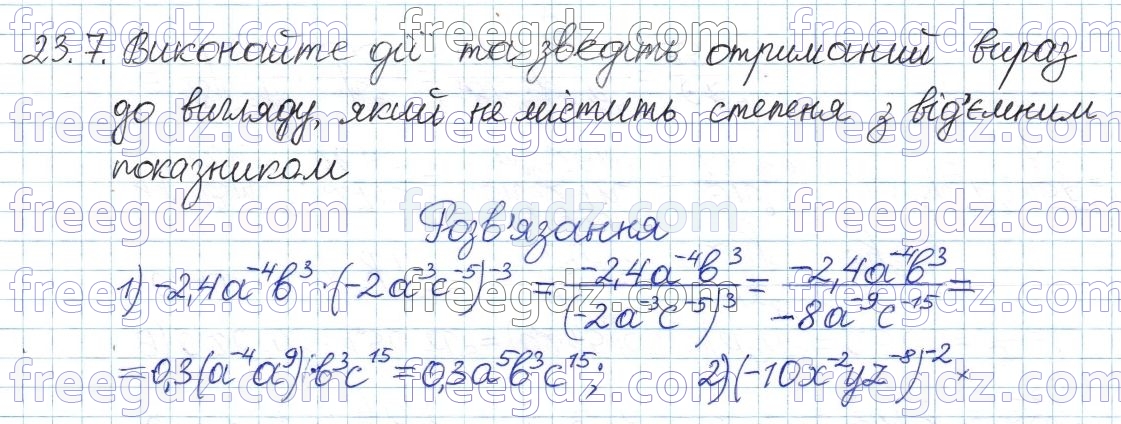 23.7. Виконайте дії та зведіть отриманий вираз
до вигляду, який не містить степеня з від'ємним
показником
Розв'язання
1) -2,4a⁻⁴b³ · (-2a⁻³c⁻⁵)⁻³ = -2,4a⁻⁴b³/(-2a⁻³c⁻⁵)³ = -2,4a⁻⁴b³/-8a⁻⁹c⁻¹⁵ =
= 0,3(a⁻⁴a⁹)·b³c¹⁵ = 0,3a⁵b³c¹⁵; 2) (-10x⁻²yz⁻⁸)⁻² ×